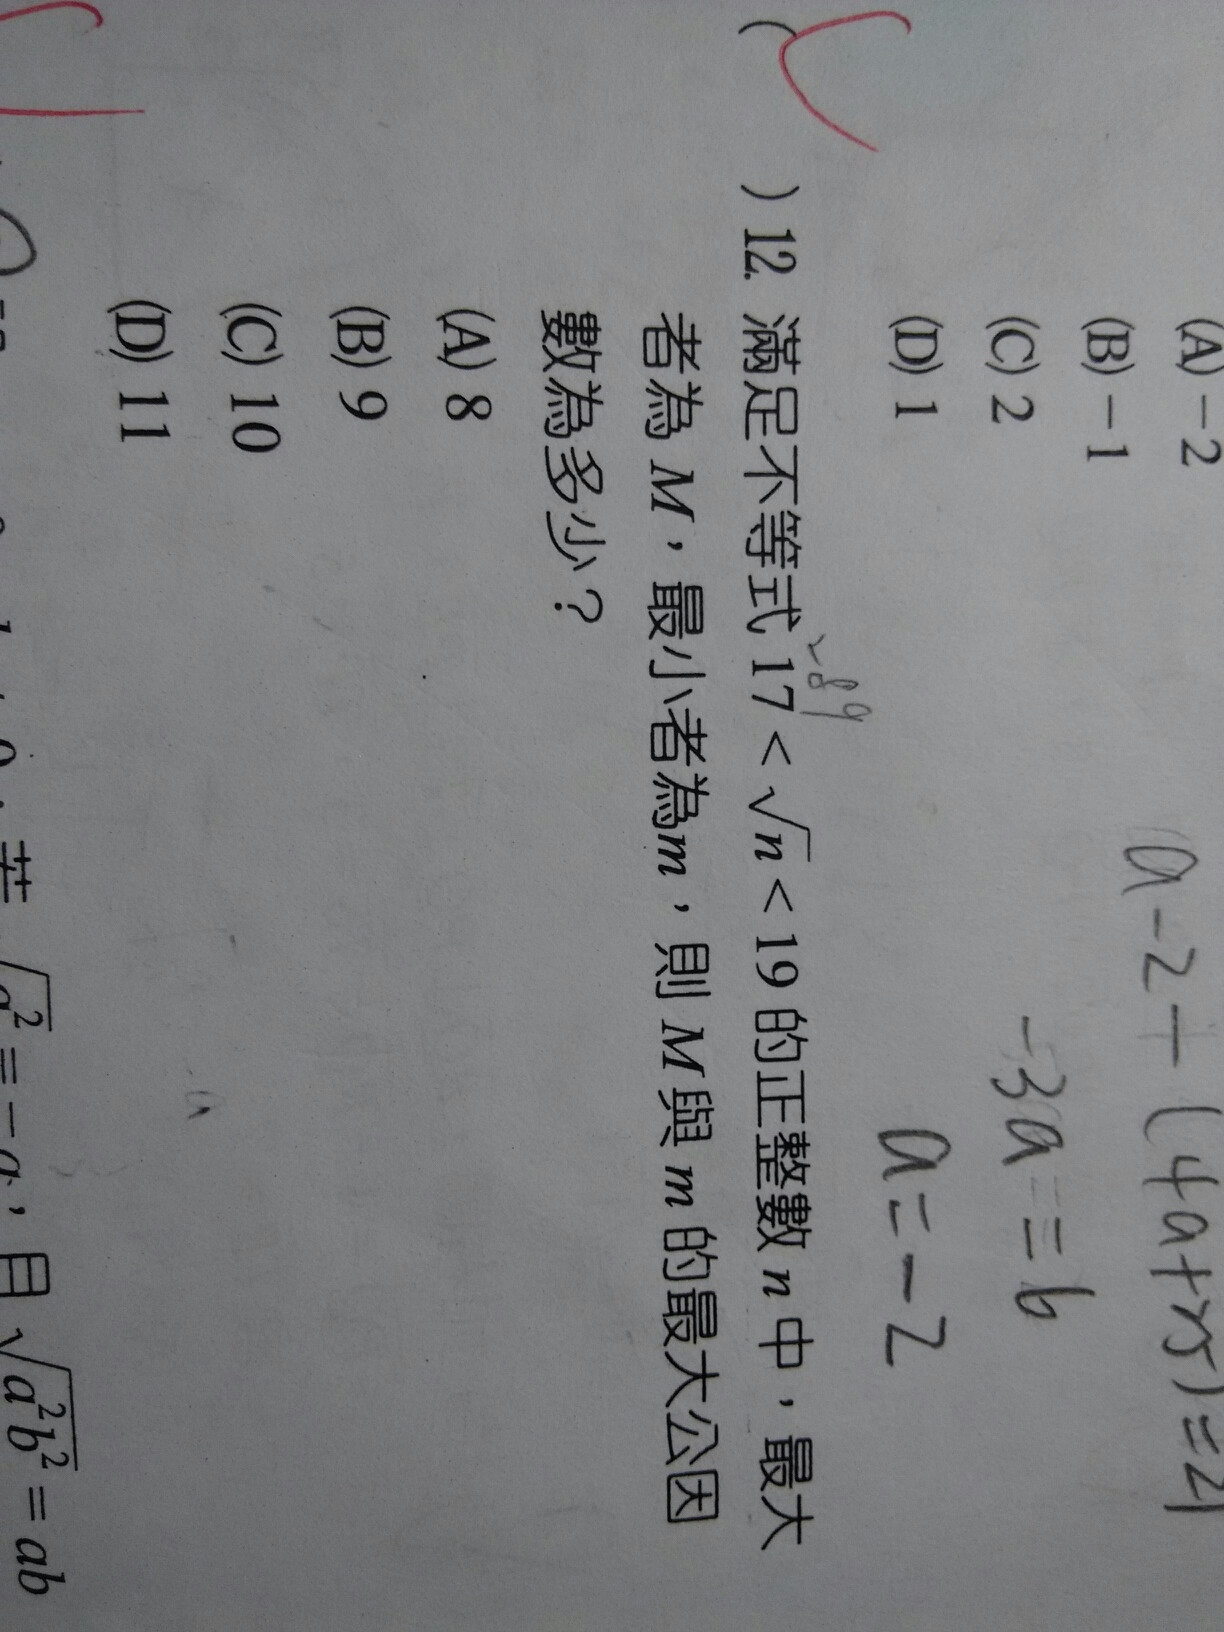 (A) -2
(B) -1
(C) 2
(D) 1
a-2+(4a+15)=21
-3a==6
a=-2
289
( ) 12. 滿足不等式 17 < √n < 19 的正整數 n 中，最大
者為 M，最小者為m，則 M 與 m 的最大公因
數為多少？
(A) 8
(B) 9
(C) 10
(D) 11
若 √a² = -a，且 √a²b² = ab